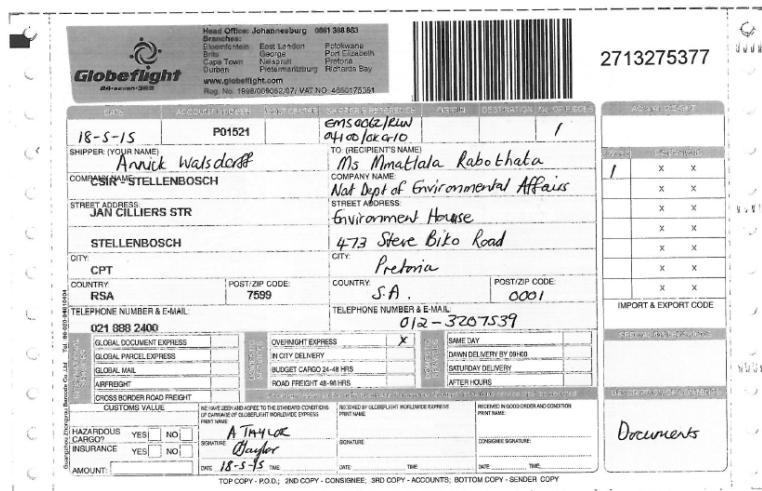 Globeflight
24-seven-365
Head Office: Johannesburg 0861 388 883
Branches:
Bloemfontein East London Polokwane
Brits George Port Elizabeth
Cape Town Nelspruit Pretoria
Durban Pietermaritzburg Richards Bay
www.globeflight.com
2713275377
DATE ACCOUNT NUMBER SHIPPER'S REFERENCE ORIGIN DESTINATION No. OF PIECES
18-5-15 P01521 1
SHIPPER: (YOUR NAME)
Annick Walsdorff
COMPANY NAME:
CSIR - STELLENBOSCH
STREET ADDRESS:
JAN CILLIERS STR
STELLENBOSCH
CITY:
CPT
COUNTRY: POST/ZIP CODE:
RSA 7599
TELEPHONE NUMBER & E-MAIL:
021 888 2400
TO: (RECIPIENT'S NAME)
Ms Mmatlala Rabothata
COMPANY NAME:
Nat Dept of Environmental Affairs
STREET ADDRESS:
Environment House
473 Steve Biko Road
CITY:
Pretoria
COUNTRY: POST/ZIP CODE:
S.A. 0001
TELEPHONE NUMBER & E-MAIL:
012-3207539
1 x x
x x
x x
x x
x x
x x
x x
IMPORT & EXPORT CODE
GLOBAL DOCUMENT EXPRESS
GLOBAL PARCEL EXPRESS
GLOBAL MAIL
AIRFREIGHT
CROSS BORDER ROAD FREIGHT
OVERNIGHT EXPRESS x
IN CITY DELIVERY
BUDGET CARGO 24-48 HRS
ROAD FREIGHT 48-96 HRS
SAME DAY
DAWN DELIVERY BY 09H00
SATURDAY DELIVERY
AFTER HOURS
CUSTOMS VALUE
HAZARDOUS CARGO? YES NO
INSURANCE YES NO
AMOUNT:
WE HAVE READ AND AGREE TO THE STANDARD CONDITIONS
OF CARRIAGE OF GLOBEFLIGHT WORLDWIDE EXPRESS
PRINT NAME
A TAYLOR
SIGNATURE
DATE 18-5-15 TIME
RECEIVED BY GLOBEFLIGHT WORLDWIDE EXPRESS
PRINT NAME
SIGNATURE
DATE: TIME
RECEIVED IN GOOD ORDER AND CONDITION
PRINT NAME:
CONSIGNEE SIGNATURE:
DATE: TIME:
Documents
TOP COPY - P.O.D.; 2ND COPY - CONSIGNEE; 3RD COPY - ACCOUNTS; BOTTOM COPY - SENDER COPY